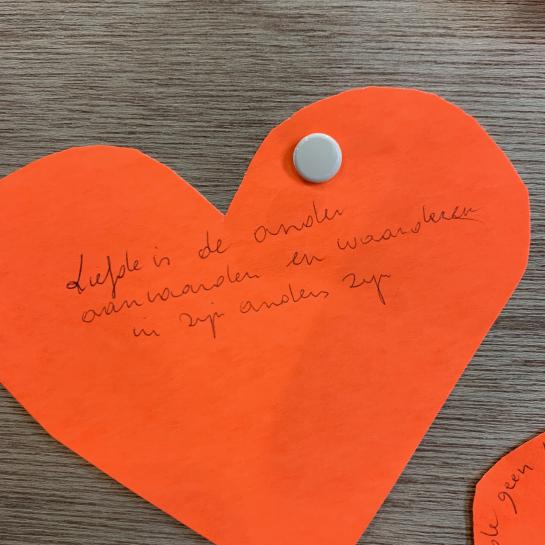 Liefde is de ander
aanvaarden en waarderen
in zijn anders zijn
geen